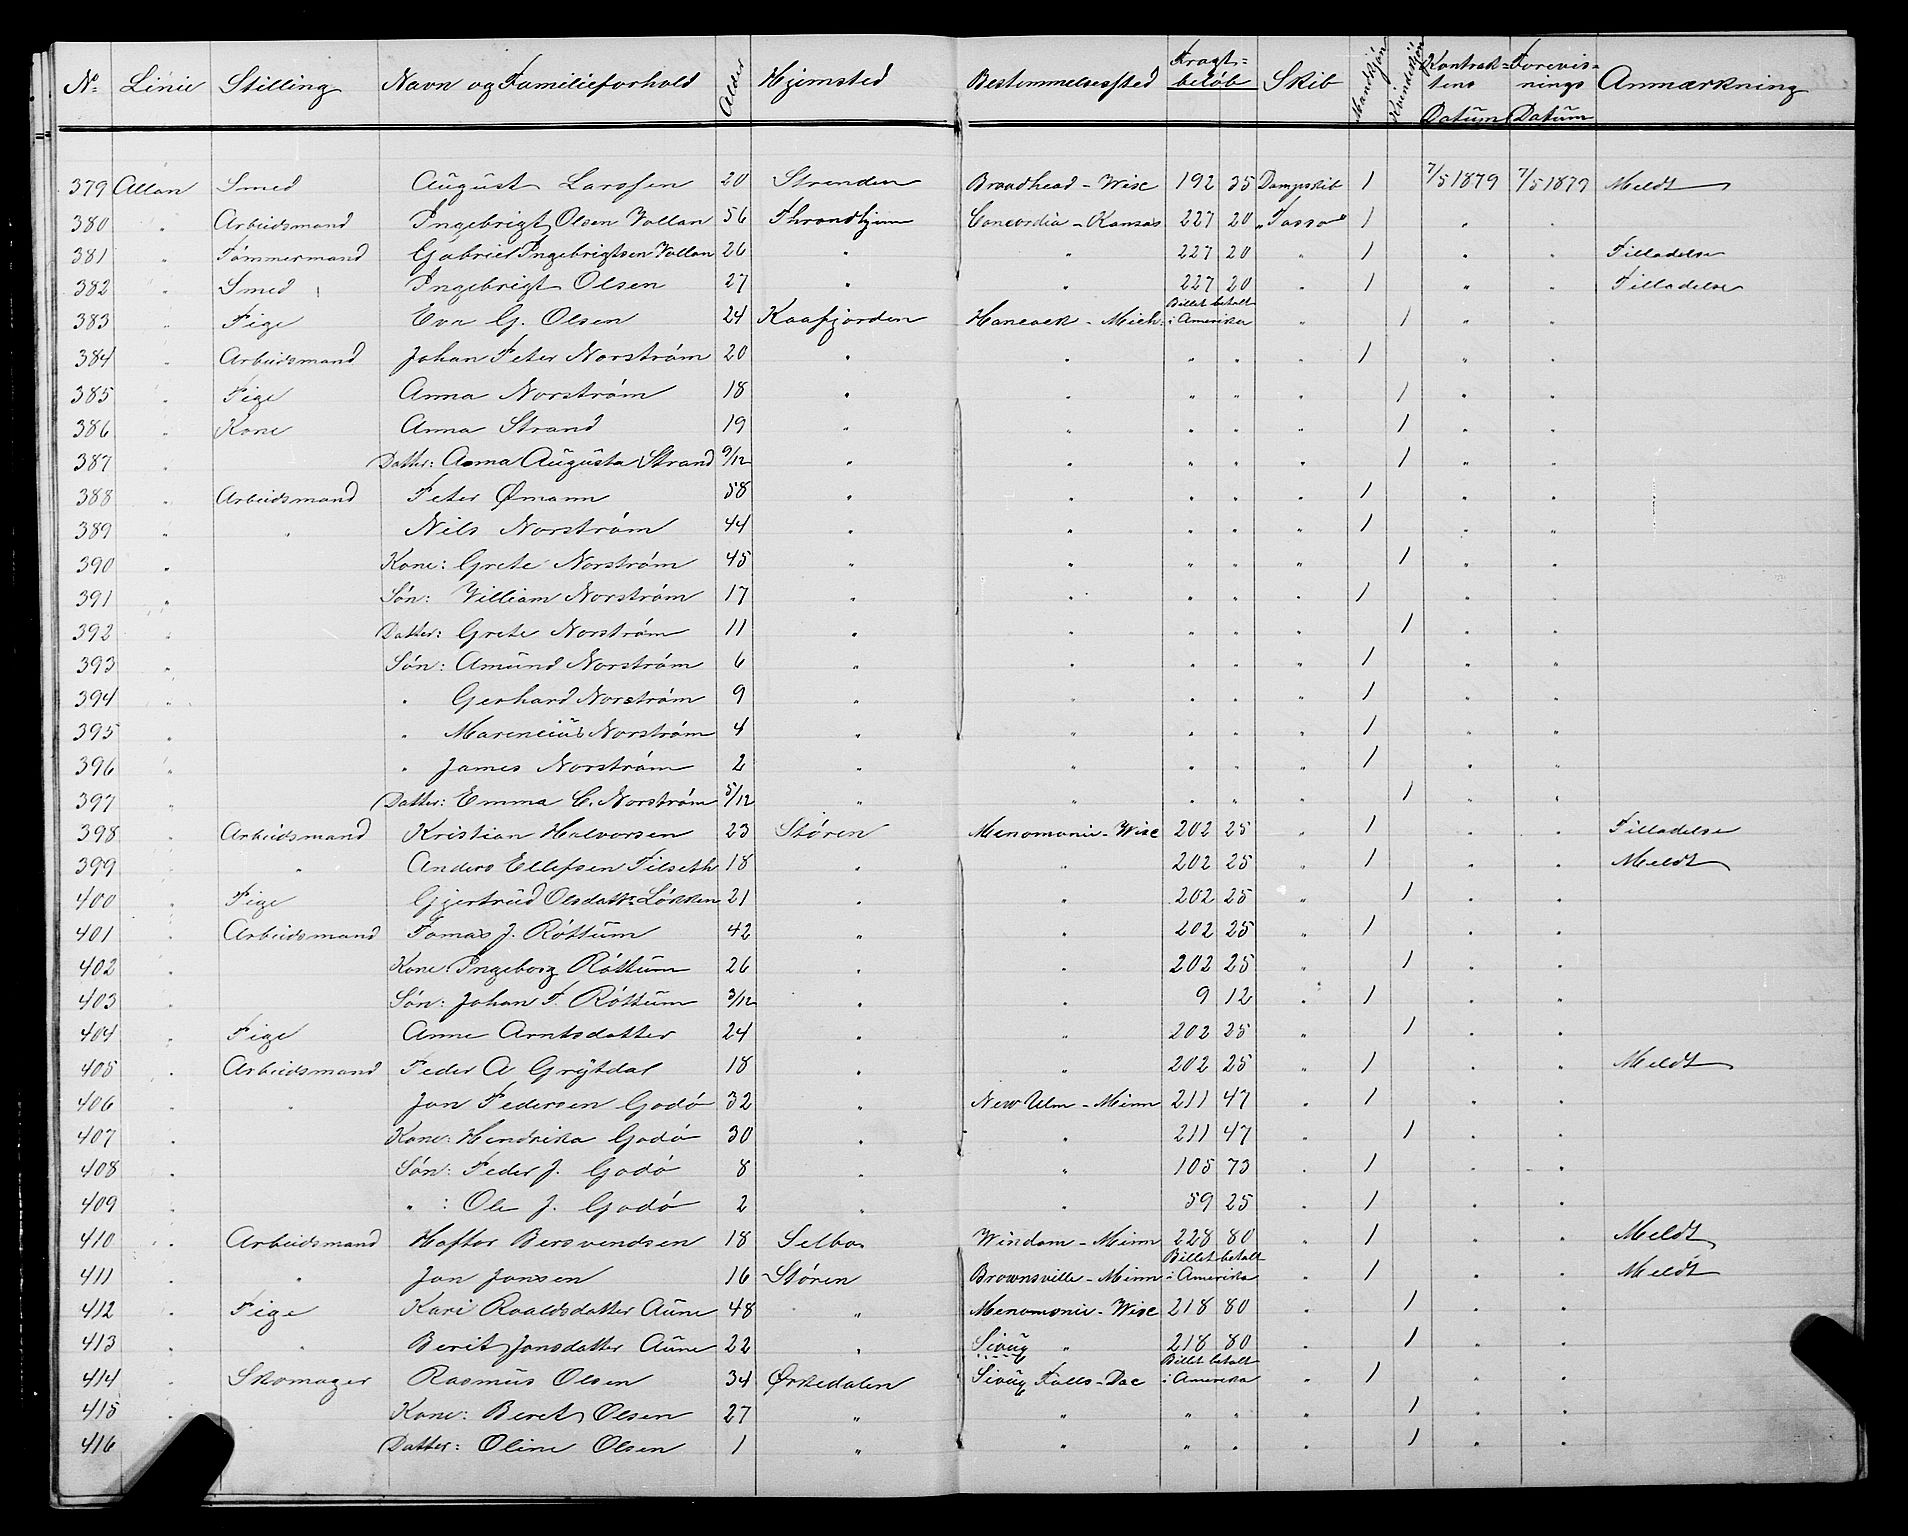 No Linie Stilling Navn og Familieforhold Alder Hjemsted Bestemmelsessted Fragt-beløb Skib Mandkjön Kvindekjön Kontrak-tens Datum Forevis-nings Datum Anmærkning
379 Allan Smed August Larssen 20 Strenden Broadhead - Wisc 192 35 Dampskib 1 7/5 1879 7/5 1879 Meldt
380 " Arbeidsmand Ingebrigt Olsen Vollan 56 Throndhjem Concordia - Kansas 227 20 "Tasso" 1 " "
381 " Tømmermand Gabriel Ingebrigtsen Vollan 26 " " 227 20 " 1 " " Tilladelse
382 " Smed Ingebrigt Olsen 27 " " 227 20 " 1 " " Tilladelse
383 " Pige Eva G. Olsen 24 Kaafjorden Hancock - Mich. Billet betalt i Amerika " 1 " "
384 " Arbeidsmand Johan Peter Norström 20 " " " " " 1 " "
385 " Pige Anna Norström 18 " " " " " 1 " "
386 " Kone Anna Strand 19 " " " " " 1 " "
387 " Datter: Anna Augusta Strand 9/12 " " " " " 1 " "
388 " Arbeidsmand Peter Ømann 58 " " " " " 1 " "
389 " " Nils Norström 44 " " " " " 1 " "
390 " Kone: Grete Norström 45 " " " " " 1 " "
391 " Sön: Villiam Norström 17 " " " " " 1 " "
392 " Datter: Grete Norström 11 " " " " " 1 " "
393 " Sön: Amund Norström 6 " " " " " 1 " "
394 " " Gerhard Norström 9 " " " " " 1 " "
395 " " Marencius Norström 4 " " " " " 1 " "
396 " " James Norström 2 " " " " " 1 " "
397 " Datter: Emma C. Norström 5/12 " " " " " 1 " "
398 " Arbeidsmand Kristian Halvorsen 23 Støren Menomonie - Wisc 202 25 " 1 " " Tilladelse
399 " " Anders Ellefsen Filseth 18 " " 202 25 " 1 " " Meldt
400 " Pige Gjertrud Olsdatt: Løkken 21 " " 202 25 " 1 " "
401 " Arbeidsmand Tomas J. Röttum 42 " " 202 25 " 1 " "
402 " Kone: Ingeborg Röttum 26 " " 202 25 " 1 " "
403 " Sön: Johan T. Röttum 3/12 " " 9 12 " 1 " "
404 " Pige Anne Arntsdatter 24 " " 202 25 " 1 " "
405 " Arbeidsmand Peder A Grytdal 18 " " 202 25 " 1 " " Meldt
406 " " Jon Pedersen Godö 32 " New Ulm - Minn 211 47 " 1 " "
407 " Kone: Hendrika Godö 30 " " 211 47 " 1 " "
408 " Sön: Peder J. Godö 8 " " 105 73 " 1 " "
409 " " : Ole J. Godö 2 " " 59 25 " 1 " "
410 " Arbeidsmand Haftor Bersvendsen 18 Selbo Windom - Minn 228 80 " 1 " " Meldt
411 " " Jon Jonsen 16 Støren Brownsville - Minn Billet betalt i Amerika " 1 " " Meldt
412 " Pige Kari Roaldsdatter Aune 48 " Menomonie - Wisc 218 80 " 1 " "
413 " " Berit Jonsdatter Aune 22 " Sioux " 218 80 " 1 " "
414 " Skomager Rasmus Olsen 34 Ørkedalen Sioux Falls - Dac Billet betalt i Amerika " 1 " "
415 " Kone: Beret Olsen 27 " " " " " 1 " "
416 " Datter: Oline Olsen 1 " " " " " 1 " "